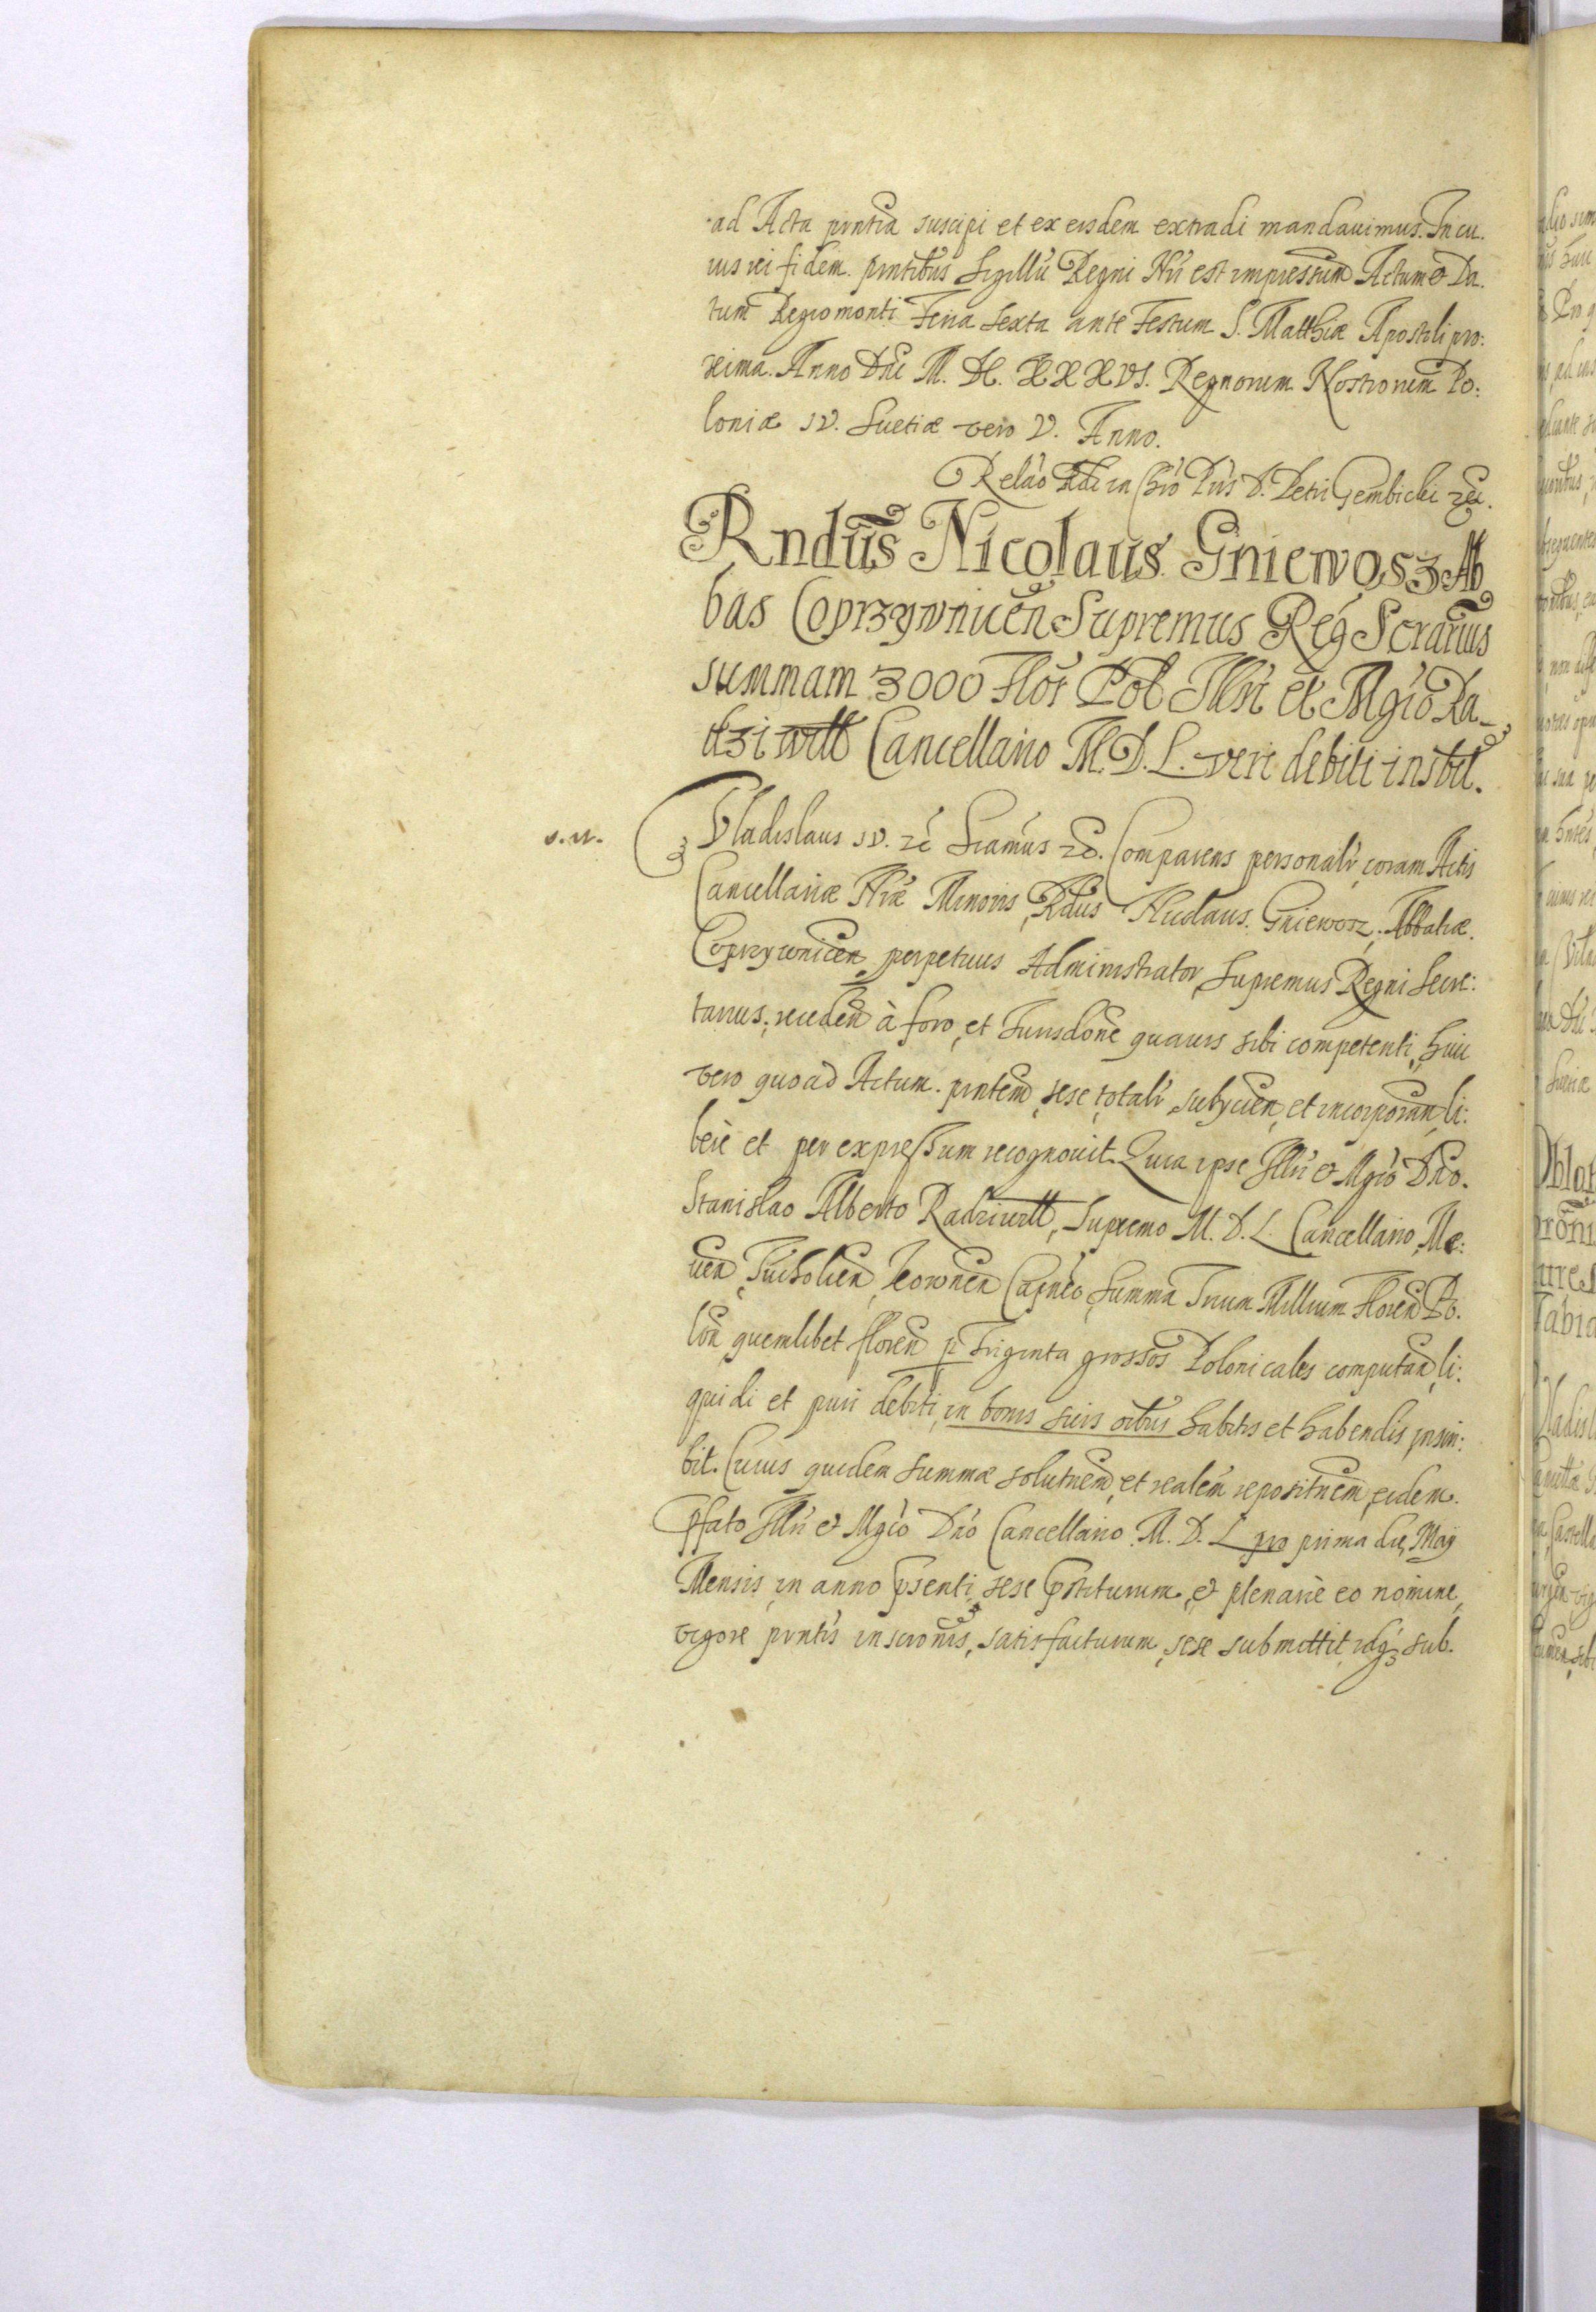 ad Acta pn̄tia suscipi et ex eisdem extradi mandauimus. In cu.
ius rei fidem. pn̄tibus Sigillū Regni Nr̄i est impressum Actum et Da.
tum Regiomonti Feria Sexta ante Festum S. Matthiæ Apostoli pro:
xima. Anno Dn̄i M. DC. XXXVI. Regnorum Nostrorum Po:
loniæ IV. Suetiæ vero V. Anno.
Relāo Rd̄i in Chrō Pr̄is D. Petri Gembicki
Rndūs Nicolaus Gniewosz Ab
bas Coprzywnicen̄ Supremus Reḡ Scrārius
summam 3000 Flor̄ Pol Illr̄i et Mgcō Ra-
dziwill Cancellario M. D. L. veri debiti inscbit.
Vladislaus IV. Comparens personalr̄ coram Actis
Cancellariæ Nr̄æ Minoris, Rd̄us Nicolaus. Gniewosz, Abbatiæ.
Coprzywnicen̄ perpetuus Administrator, Supremus Regni Secre:
tarius, receden̄ à foro, et Jurisdōne quauis sibi competenti, huic
vero quoad Actum. pn̄tem, sese totalr̄ subycien̄, et incorporan̄, li:
berè et per expressum recognouit. Quia ipse Illr̄i et Mgcō Dn̄o.
Stanislao Alberto Radziwill, Supremo M. D. L. Cancellario, Me:
uen̄, Tucholien̄, Capn̄eo, Summā Trium Millium Floren̄ Po.
lon̄ quemlibet floren̄ p Triginta grossos Polonicales computan̄, li:
quidi et puri debiti, in bonis suis oībus habitis et habendis inscri:
bit. Cuius quidem summæ solutnem, et realem repositnem, eidem.
Pfato Illr̄i et Mgcō Dn̄o Cancellario. M. D. L pro prima die, Maÿ
Mensis, in anno psenti, sese et plenariè eo nomine,
vigore pn̄tis inscrōnis, satisfacturum, sese submittit, idq; sub.